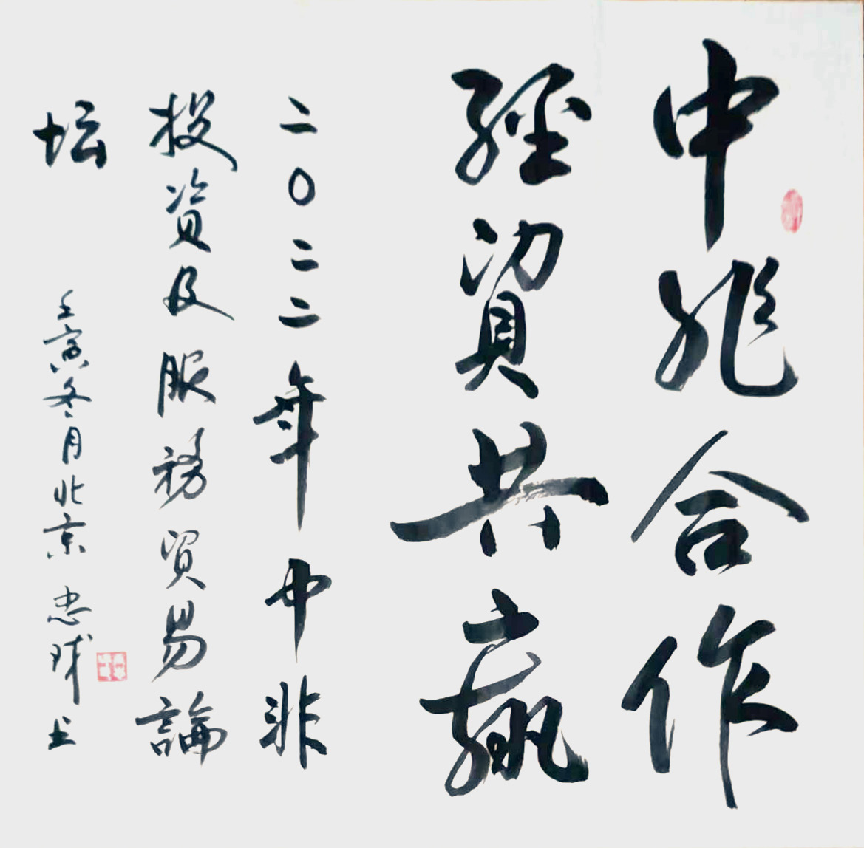 中非合作
經貿共贏
二〇二二年中非
投資及服務貿易論
坛
壬寅冬月北京忠球书